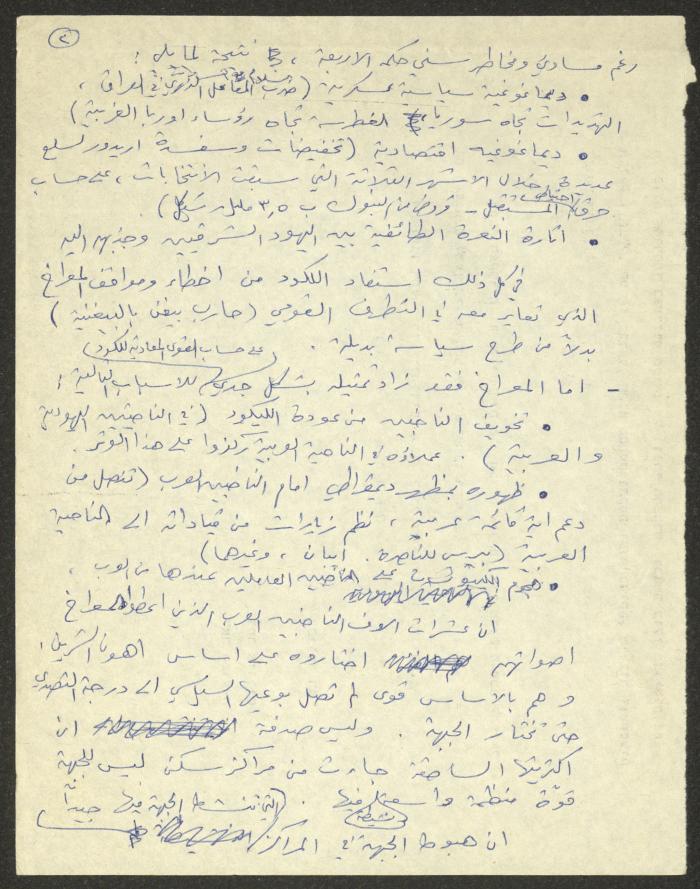 ٢
رغم مساوئ ومخاطر سني حكمه الاربعة ، نتيجة لما يلي :
• ديماغوغية سياسية عسكرية ( ضرب المفاعل الذري في العراق ،
التهديدات تجاه سوريا ، الغطرسة تجاه رؤساء اوربا الغربية )
• ديماغوغيه اقتصادية ( تخفيضات اريدور لسلع
عديدة خلال الاشهر الثلاثة التي سبقت الانتخابات ، على حساب
احتياطي المستقبل - قروض من البنوك ب ٣,٥ مليار شيكل )
• اثارة النعرة الطائفية بين اليهود الشرقيين وجذبهم اليه
في كل ذلك استفاد الليكود من اخطاء ومواقف المعراخ
الذي تعايز معه في التطرف القومي ( حارب بيغن بالبيغنية )
بدلاً من طرح سياسة بديلة .
( على حساب القوى المعادية لليكود )
- اما المعراخ فقد زاد تمثيله بشكل جدي للاسباب التالية :
• تخويف الناخبين من عودة الليكود ( في الناحيتين اليهودية
والعربية ) . عملاؤه في الناحية العربية ركزوا على هذا الوتر .
• ظهوره بمظهر دمقراطي امام الناخبين العرب ( تنصل من
دعم اية قائمة عربية ، نظم زيارات من قياداته الى الناحية
العربية ( بيرس للناصرة . ايبان ، وغيرها )
• هجوم الكيبوتسات على الناخبين العاملين عندها من العرب .
ان عشرات الاف الناخبين العرب الذين اعطوا المعراخ
اصواتهم اختاروه على اساس اهون الشرين ،
وهم بالاساس قوى لم تصل بوعيها السياسي الى درجة التصدي
حتى تختار الجبهة . وليس صدفة ان
اكثريتها الساحقة جاءت من مراكز سكن ليس للجبهة
قوة منظمة واسعة فيها .
نشيطة
ان هبوط الجبهة في المراكز ( التي تنشط الجبهة فيها جيداً )